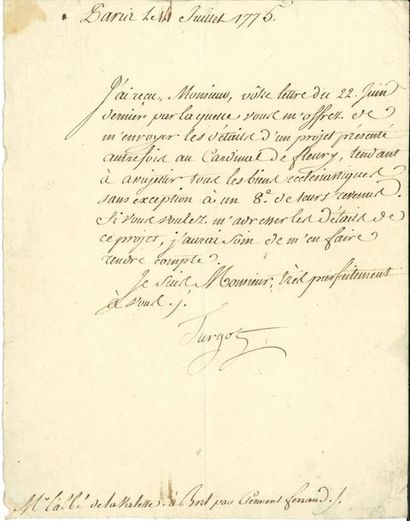 Paris le 11 Juillet 1775.
J'ai reçu, Monsieur, vôtre lettre du 22. Juin
dernier par laquelle vous m'offrez de
m'envoyer les détails d'un projet présenté
autrefois au Cardinal de fleury, tendant
à assujettir tous les biens ecclesiastiques
sans exception à un 8e. de leurs revenus.
Si vous voulez m'adresser les détails de
ce projet, j'aurai soin de m'en faire
rendre compte.
Je suis Monsieur, très parfaitement
à vous./.
Turgot
Mr. l'abbé de la Valette. à Bort par Clermont ferrand./.